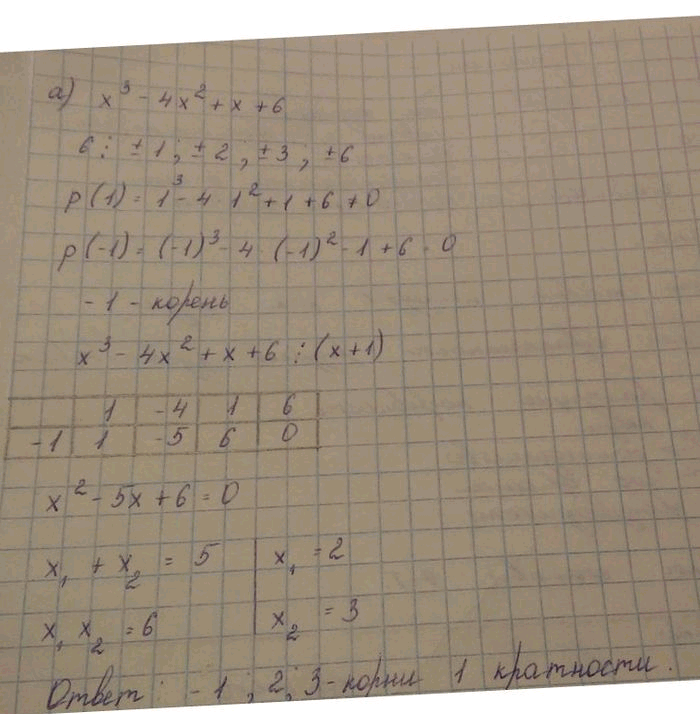 а) x³ - 4x² + x + 6
6 ⋮ ±1 ; ± 2 ; ± 3 ; ±6
p(1) = 1³ - 4 · 1² + 1 + 6 ≠ 0
p(-1) = (-1)³ - 4 · (-1)² - 1 + 6 = 0
-1 - корень
x³ - 4x² + x + 6 ⋮ (x+1)
1 -4 1 6
-1 1 -5 6 0
x² - 5x + 6 = 0
x₁ + x₂ = 5 | x₁ = 2
x₁ x₂ = 6 | x₂ = 3
Ответ : -1 ; 2 ; 3 - корни 1 кратности.